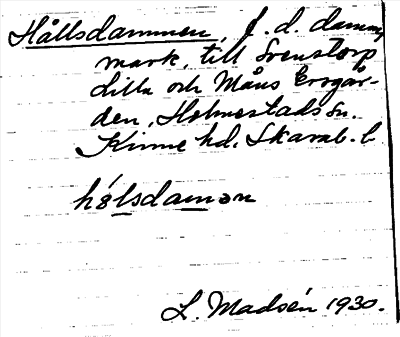 Hållsdammen, f. d. damm,
mark, till Svenstorp
lilla och Måns Erogår-
den, Holmestads sn.
Kinne hd. Skarab. l
hǿlsdamən
L. Madsén 1930.